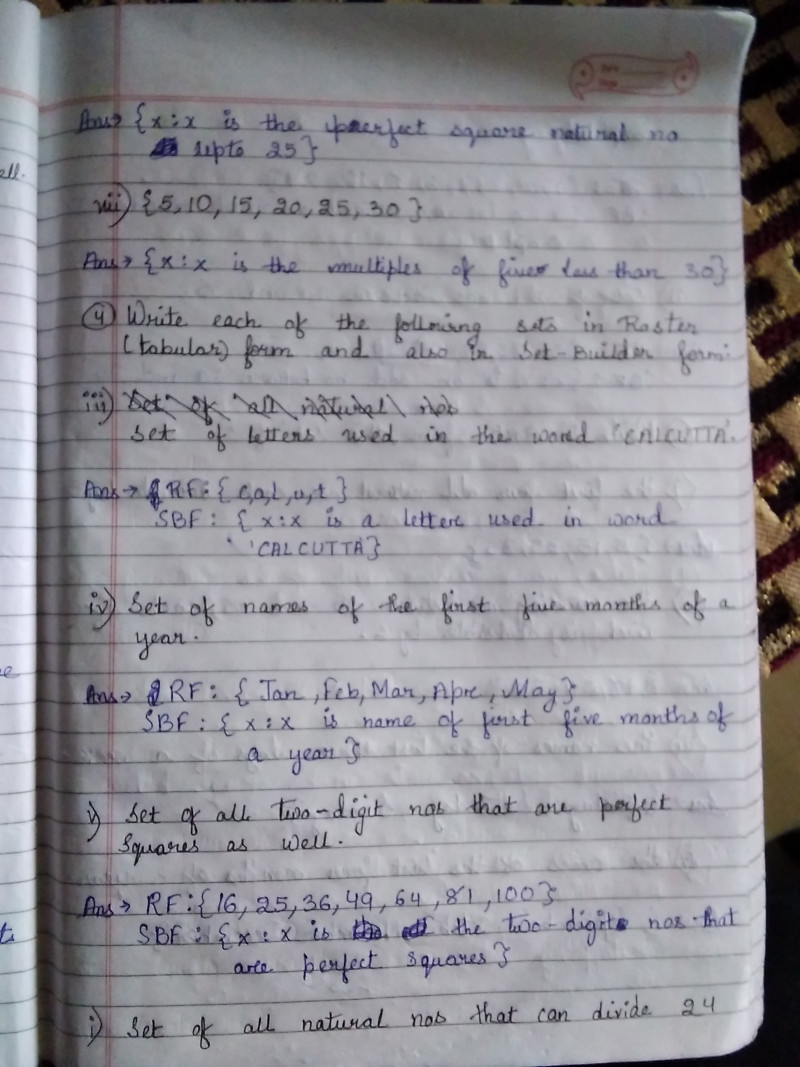 Ans→ {x:x is the perfect square natural no
upto 25}
ell.
vii) {5, 10, 15, 20, 25, 30}
Ans→ {x:x is the multiples of five less than 30}
④ Write each of the following sets in Roster
(tabular) form and also in Set-Builder form:
iii) Set of all natural nos
Set of letters used in the word 'CALCUTTA'.
Ans→ RF: {c,a,l,u,t}
SBF: {x:x is a letter used in word
'CALCUTTA}
iv) Set of names of the first five months of a
year.
Ans→ RF: {Jan, Feb, Mar, Apr, May}
SBF: {x:x is name of first five months of
a year}
v) Set of all two-digit nos that are perfect
squares as well.
Ans→ RF:{16, 25, 36, 49, 64, 81, 100}
SBF: {x:x is the two-digit nos that
are perfect squares}
i) Set of all natural nos that can divide 24